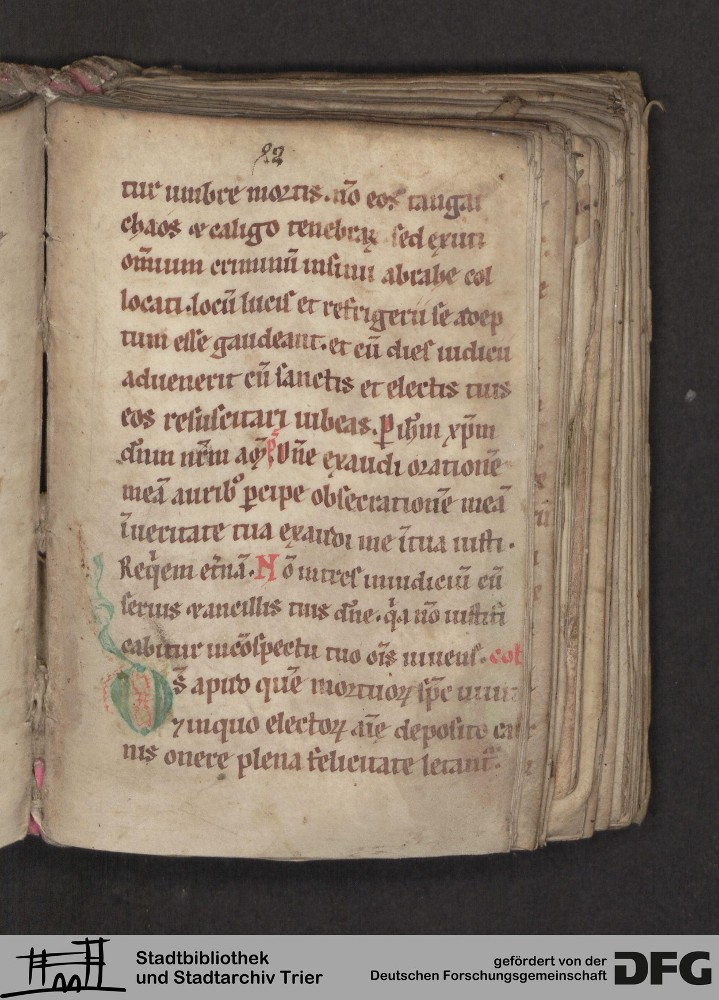 82
tur umbre mortis. nō eos tangat
chaos & caligo tenebraꝝ sed exuti
om̄ium criminū insinu abrahe col
locati. locū lucis et refrigerii se adep
tum esse gaudeant. et cū dies iudicii
aduenerit cū sanctis et electis tuis
eos resuscitari iubeas. P ihm xp̄m
dn̄m nr̄m
Dn̄e exaudi orationē
meā auribꝰ ꝑcipe obsecrationē meā
īueritate tua exaudi me ītua iusti.
Reqͥem et̄nā. Nō intres iniudiciū cū
seruis & ancillis tuis dn̄e. qͥa nō iustifi
cabitur incōspectu tuo oīs uiuens. col
Ds̄ apud quē mortuoꝝ sp̄c uiuu
⁊ inquo electoꝝ aīe deposito car
nis onere plena felicitate letant᷑.
Stadtbibliothek
und Stadtarchiv Trier
gefördert von der
Deutschen Forschungsgemeinschaft
DFG